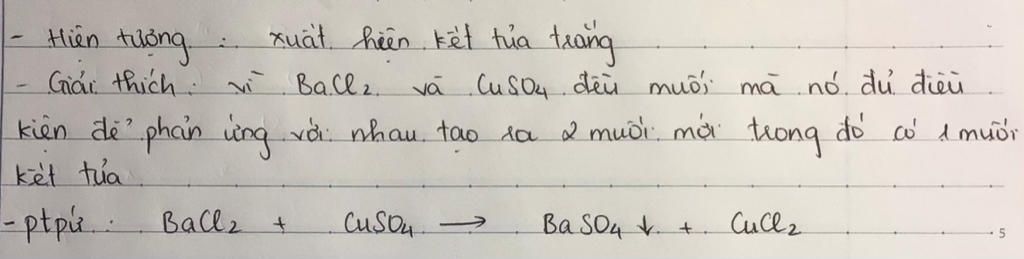 - Hiện tượng : xuất hiện kết tủa trắng
- Giải thích : vì BaCl2 và CuSO4 đều muối mà nó đủ điều
kiện để phản ứng với nhau tạo ra 2 muối mới trong đó có 1 muối
kết tủa
- ptpứ : BaCl2 + CuSO4 → BaSO4 ↓ + CuCl2
5